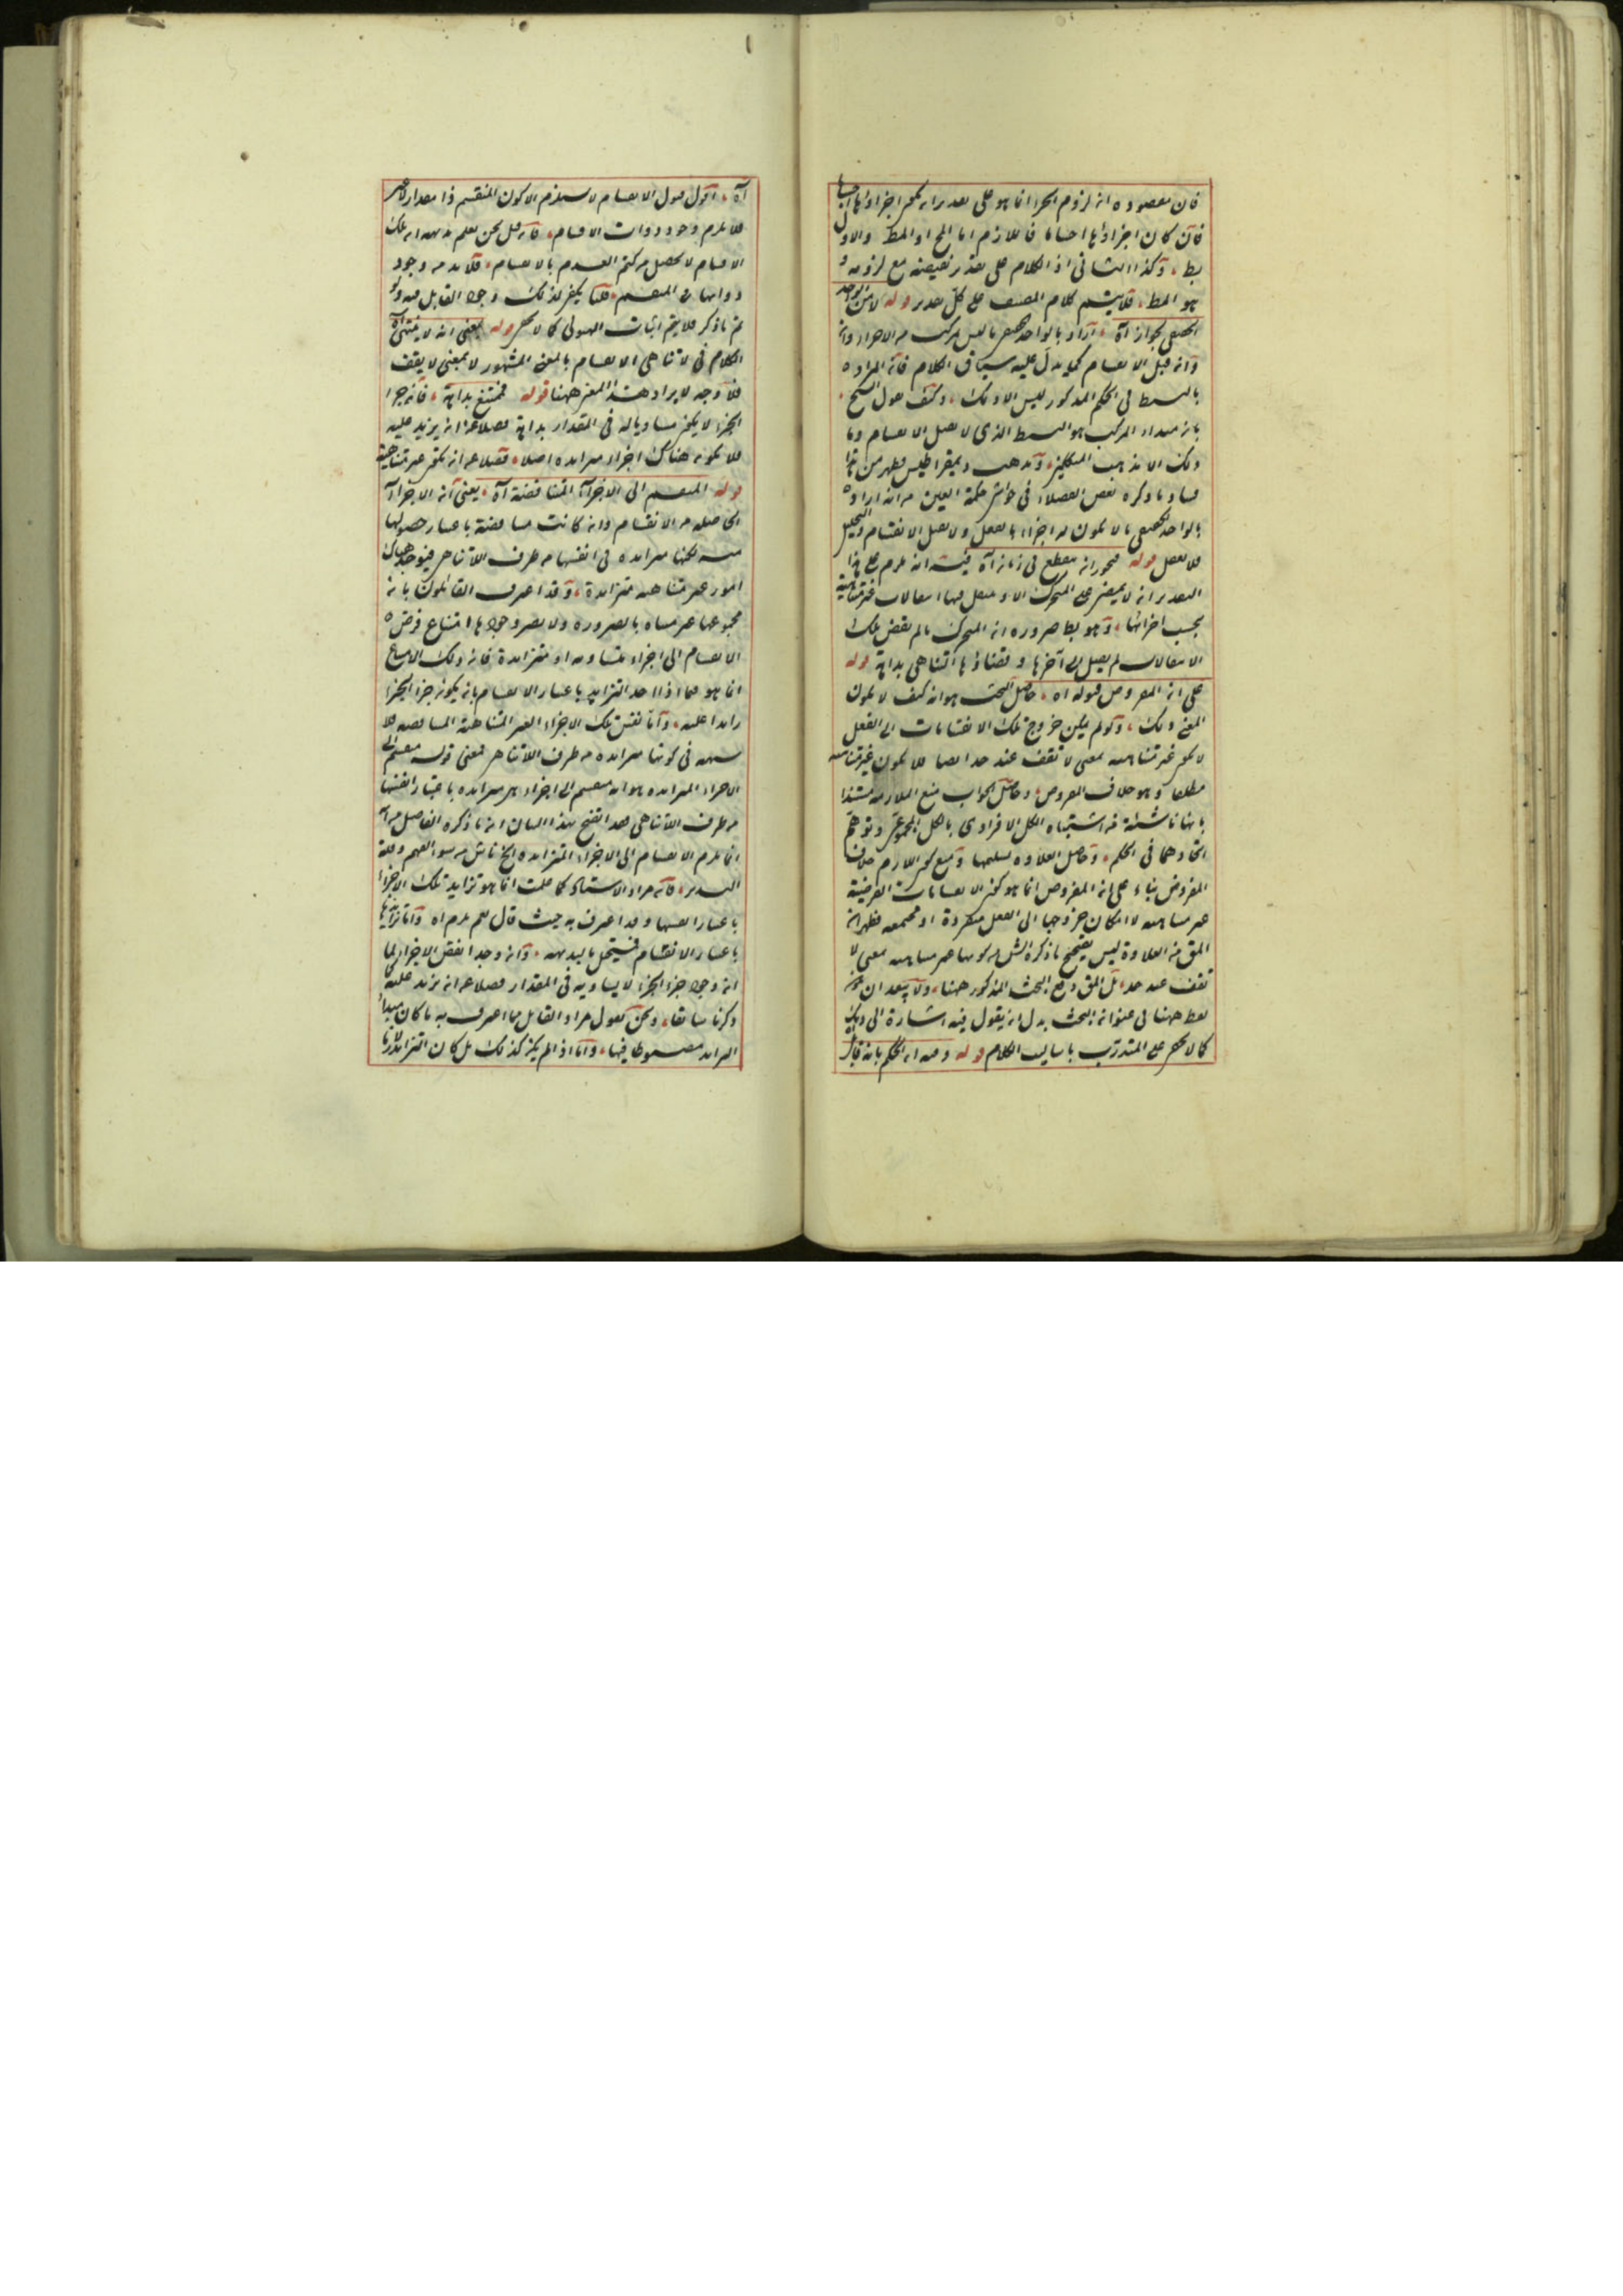 فان مقصوده ان لزوم الجزء انما هو على تقدير ان يكون اجزاؤها اجساما
فان كان اجزاؤها اجساما فاللازم اما المح او المط والاول
بط، وكذا الثانى اذ الكلام على تقدير نقيضه مع لزومه و
هو المط، فلايتم كلام المصنف على كل تقدير قوله لان الواحد
الحقيقى لجواز آه، اراد بالواحد الحقيقى ما ليس بمركب من الاجزاء وان
وانه قبل الانقسام كما يدل عليه سياق الكلام فان المراد
بالبسيط فى الحكم المذكور ليس الا ذلك، وكيف يقول الشيخ
بان مبداء المركب هو البسيط الذى لا يقبل الانقسام وما
ذلك الا مذهب المتكلمين، ومذهب ذيمقراطيس فظهر من هذا
فساد ما ذكره بعض الفضلاء فى حواشى حكمة العين من انه اراد
بالواحد الحقيقى ما لا يكون له اجزاء بالفعل ولا يقبل الانقسام
قوله فيجوز ان ينقطع فى زمان آه فيه انه يلزم على هذا
التقدير انه لا يمضى على المتحرك الا و ينتقل فيها انتقالات غير متناهية
بحسب اجزائها، وهو بط ضرورة ان المتحرك ما لم يقض تلك
الانتقالات لم يصل الى آخرها و انقضاؤها التناهى بداهة قوله
على ان المفروض قبوله اه، حاصل البحث هو انه كيف لا يكون
المعنى ذلك، ولو لم يكن خروج تلك الانقسامات الى الفعل
لا يكون غير متناهية بمعنى لا تقف عند حد ايضا فلا يكون غير متناهية
مطلقا وهو خلاف المفروض، وحاصل الجواب منع الملازمة مستندا
بانها ناشئة من اشتباه الكل الافرادى بالكل المجموعى وتوهم
اتحادهما فى الحكم، وحاصل العلاوة تسليمها ومنع كون اللازم خلاف
المفروض بناء على ان المفروض انما هو كون الانقسامات الفرضية
غير متناهية لا امكان خروجها الى الفعل منفردة او مجتمعة فظهر ان
المق من العلاوة ليس تصحيح ما ذكره الش من كونها غير متناهية بمعنى لا
تقف عند حد، بل المق دفع البحث المذكور ههنا، ولا يبعد ان يكون
لفظ ههنا فى عنوان البحث بدل ان يقول فيه اشارة الى ذلك
كما لا يخفى على المتدرب باساليب الكلام قوله وفيه ان الحكم بانه قابل
آه، اقول قبول الانقسام لا يستلزم الا كون المنقسم ذا مقدار
فلا يلزم وجود ذوات الاقسام، فان قيل نحن نعلم بديهة ان تلك
الاقسام لا تحصل من كتم العدم بالانقسام، فلا بد من وجود
ذواتها فى المنقسم، قلنا يكفى لذلك وجود القابل فيه ولو
تم ما ذكر فلا يتم اثبات الهيولى كما لا يخفى قوله بمعنى انه لا ينتهى آه
الكلام فى لا تناهى الانقسام بالمعنى المشهور لا بمعنى لا يقف
فلا وجه لايراد هذا المعنى ههنا قوله فممتنع بداهة، فان جزء
الجزء لا يكون مساويا له فى المقدار بداهة فضلا عن ان يزيد عليه
فلا يكون هناك اجزاء متزايدة اصلا، فضلا عن ان تكون غير متناهية
قوله المنقسم الى الاجزاء المتناقصة آه، يعنى ان الاجزاء
الحاصلة من الانقسام وان كانت متناقصة باعتبار حصولها
منه لكنها متزايدة فى انفسها من طرف اللاتناهى فيوجد هناك
امور غير متناهية متزايدة، وقد اعترف القائلون بان
مجموعها غير متناه بالضرورة ولا يضر وجودها امتناع فرض
الانقسام الى اجزاء متساوية او متزايدة فان ذلك الامتناع
انما هو فيما اذا اخذ التزايد باعتبار الانقسام بان يكون جزء الجزء
زائدا عليه، واما نفس تلك الاجزاء الغير المتناهية المتناقصة فلا
شبهة فى كونها متزايدة من طرف اللاتناهى فمعنى قوله منقسم الى
الاجزاء المتزايدة هو انه منقسم الى اجزاء هى متزايدة باعتبار انفسها
من طرف اللاتناهى فقد اتضح بهذا البيان ان ما ذكره الفاضل من انه
انما يلزم الانقسام الى الاجزاء المتزايدة الخ ناش من سوء الفهم وقلة
التدبر، فان مراد الاستاد كما علمت انما هو تزايد تلك الاجزاء
باعتبار انفسها وقد اعترف به حيث قال نعم يلزم اه واما تزايدها
باعتبار الانقسام فيستحيل بالبديهة، وان وجد انقص الاجزاء لما
ان وجود جزء الجزء لا يساويه فى المقدار فضلا عن ان يزيد عليه
ذكرنا سابقا، ونحن نقول مراد القائل مما اعترف به ما كان مبدأ
التزايد مضبوطا فيها، واما اذا لم يكن كذلك بل كان التزايد